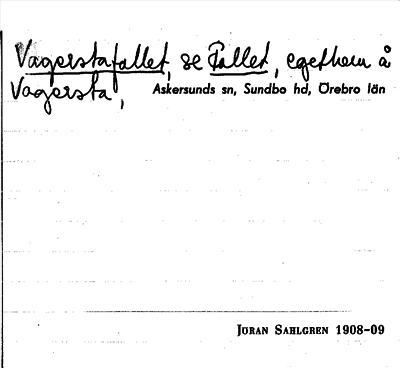 Vagerstafallet, se Fallet, egethem å
Vagersta, Askersunds sn, Sundbo hd, Örebro län
Jöran Sahlgren 1908-09